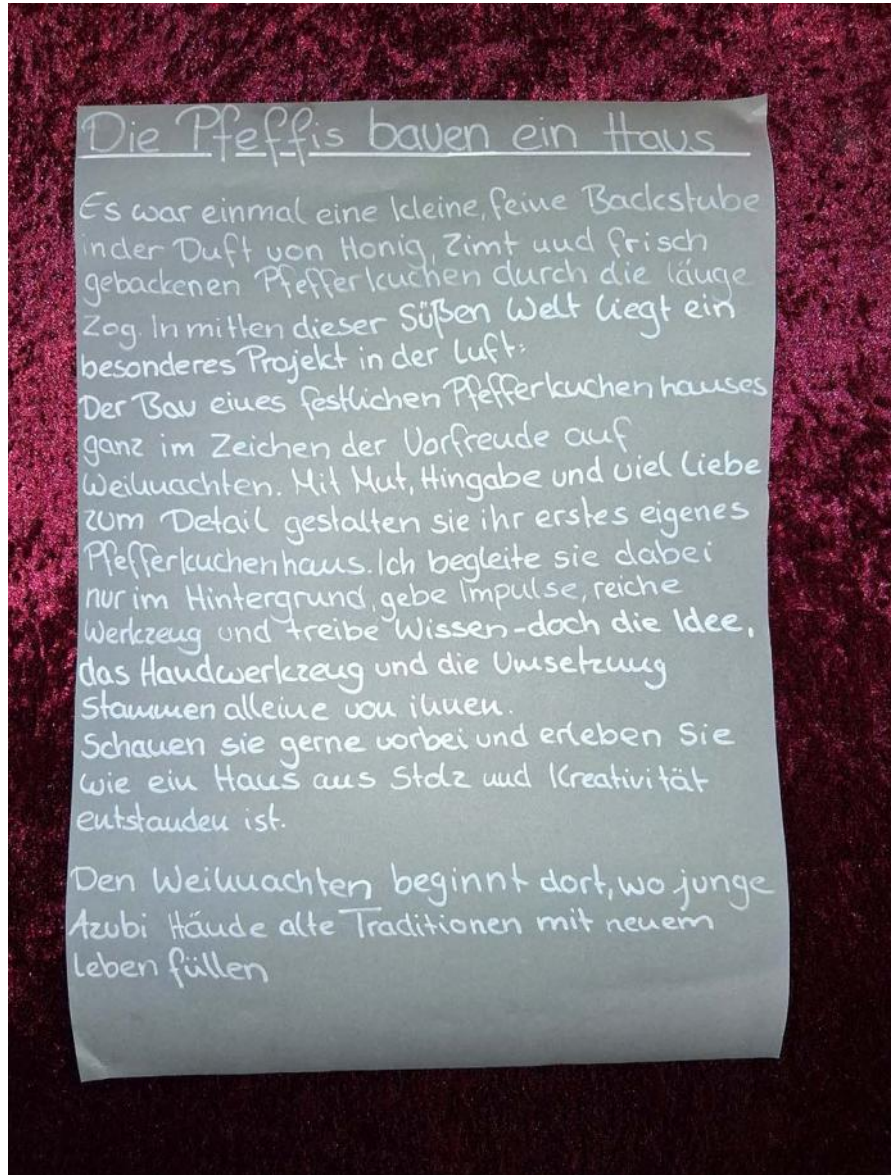 Die Pfeffis bauen ein Haus
Es war einmal eine kleine, feine Backstube
in der Duft von Honig, Zimt und frisch
gebackenen Pfefferkuchen durch die läuge
Zog. In mitten dieser Süßen Welt liegt ein
besonderes Projekt in der Luft:
Der Bau eines festlichen Pfefferkuchenhauses
ganz im Zeichen der Vorfreude auf
Weihnachten. Mit Mut, Hingabe und viel Liebe
zum Detail gestalten sie ihr erstes eigenes
Pfefferkuchenhaus. Ich begleite sie dabei
nur im Hintergrund, gebe Impulse, reiche
Werkzeug und treibe Wissen-doch die Idee,
das Handwerkzeug und die Umsetzung
Stammen alleine von ihnen.
Schauen sie gerne vorbei und erleben Sie
wie ein Haus aus Stolz und Kreativität
entstanden ist.
Den Weihnachten beginnt dort, wo junge
Azubi Hände alte Traditionen mit neuem
leben füllen